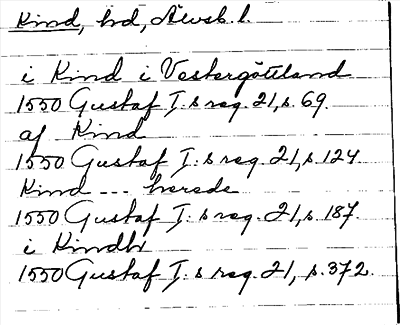 Kind, hd, Älvsb. l.
i Kind i Vestergöttland
1550 Gustaf I:s reg. 21, s. 69.
af Kind
1550 Gustaf I:s reg. 21, s. 124
Kind --- herede
1550 Gustaf I:s reg. 21, s. 187.
i Kindh
1550 Gustaf I:s reg. 21, s. 372.